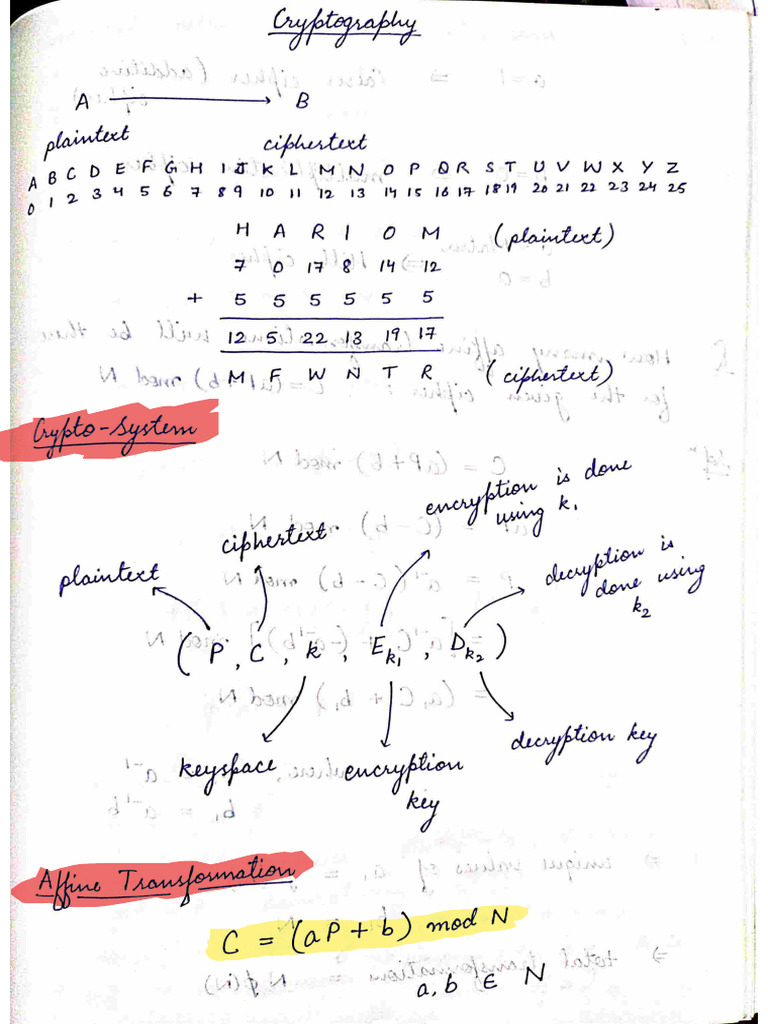 Cryptography
A ⟶ B
plaintext ciphertext
A B C D E F G H I J K L M N O P Q R S T U V W X Y Z
0 1 2 3 4 5 6 7 8 9 10 11 12 13 14 15 16 17 18 19 20 21 22 23 24 25
H A R I O M (plaintext)
7 0 17 8 14 12
+ 5 5 5 5 5 5
12 5 22 13 19 17
M F W N T R (ciphertext)
Crypto-System
encryption is done
using k₁
ciphertext
plaintext
decryption is
done using
k₂
(P, C, k, Eₖ₁, Dₖ₂)
decryption key
keyspace encryption
key
Affine Transformation
C = (aP + b) mod N
a, b ∈ N